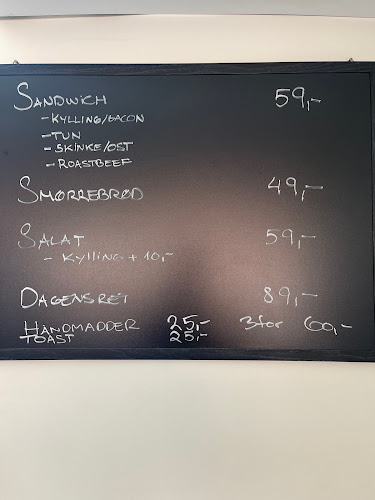 SANDWICH 59,-
- KYLLING/BACON
- TUN
- SKINKE/OST
- ROASTBEEF
SMØRREBRØD 49,-
SALAT 59,-
- KYLLING + 10,-
DAGENSRET 89,-
HANDMADDER 25,- 3 for 60,-
TOAST 25,-